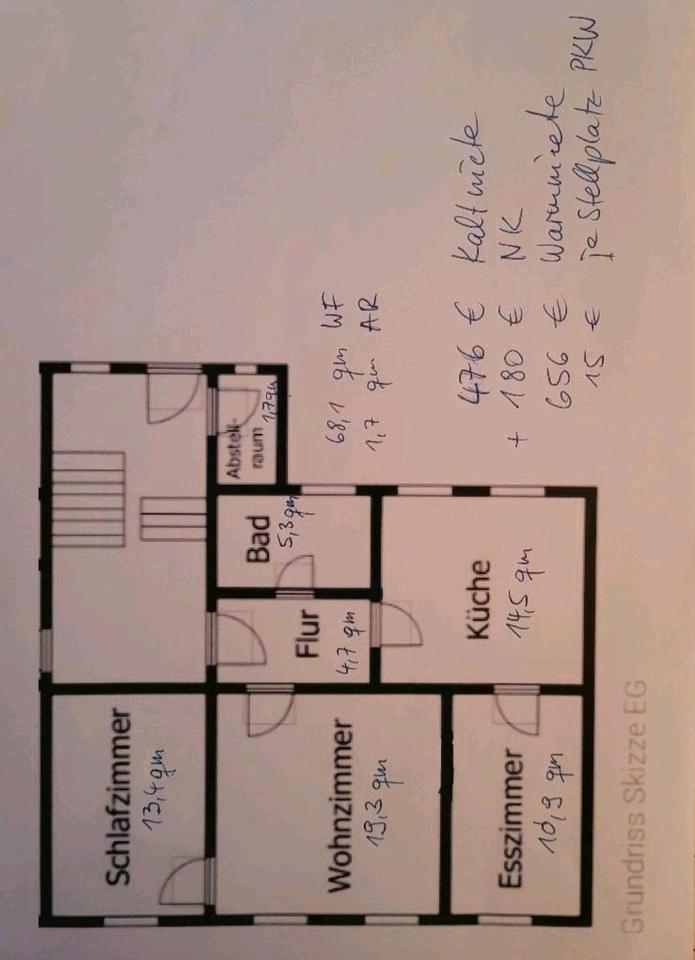 Schlafzimmer
13,4 qm
Wohnzimmer
19,3 qm
Esszimmer
10,9 qm
Flur
4,7 qm
Bad
5,3 qm
Küche
14,5 qm
Abstell-
raum
1,7 qm
68,1 qm WF
1,7 qm AR
476 € Kaltmiete
+ 180 € NK
656 € Warmmiete
15 € je Stellplatz PKW
Grundriss Skizze EG